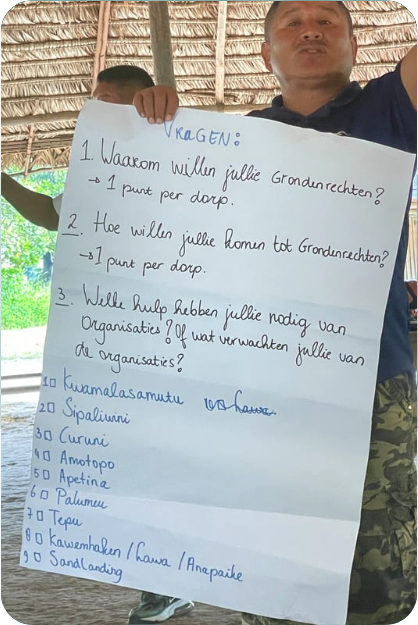 VRAGEN:
1. Waarom willen jullie Grondenrechten?
→ 1 punt per dorp.
2. Hoe willen jullie komen tot Grondenrechten?
→ 1 punt per dorp.
3. Welke hulp hebben jullie nodig van
Organisaties? Of wat verwachten jullie van
de organisaties?
1 □ Kwamalasamutu
2 □ Sipaliwini
3 □ Curuni
4 □ Amotopo
5 □ Apetina
6 □ Palumeu
7 □ Tepu
8 □ Kawemhaken / Lawa / Anapaike
9 □ Sandlanding